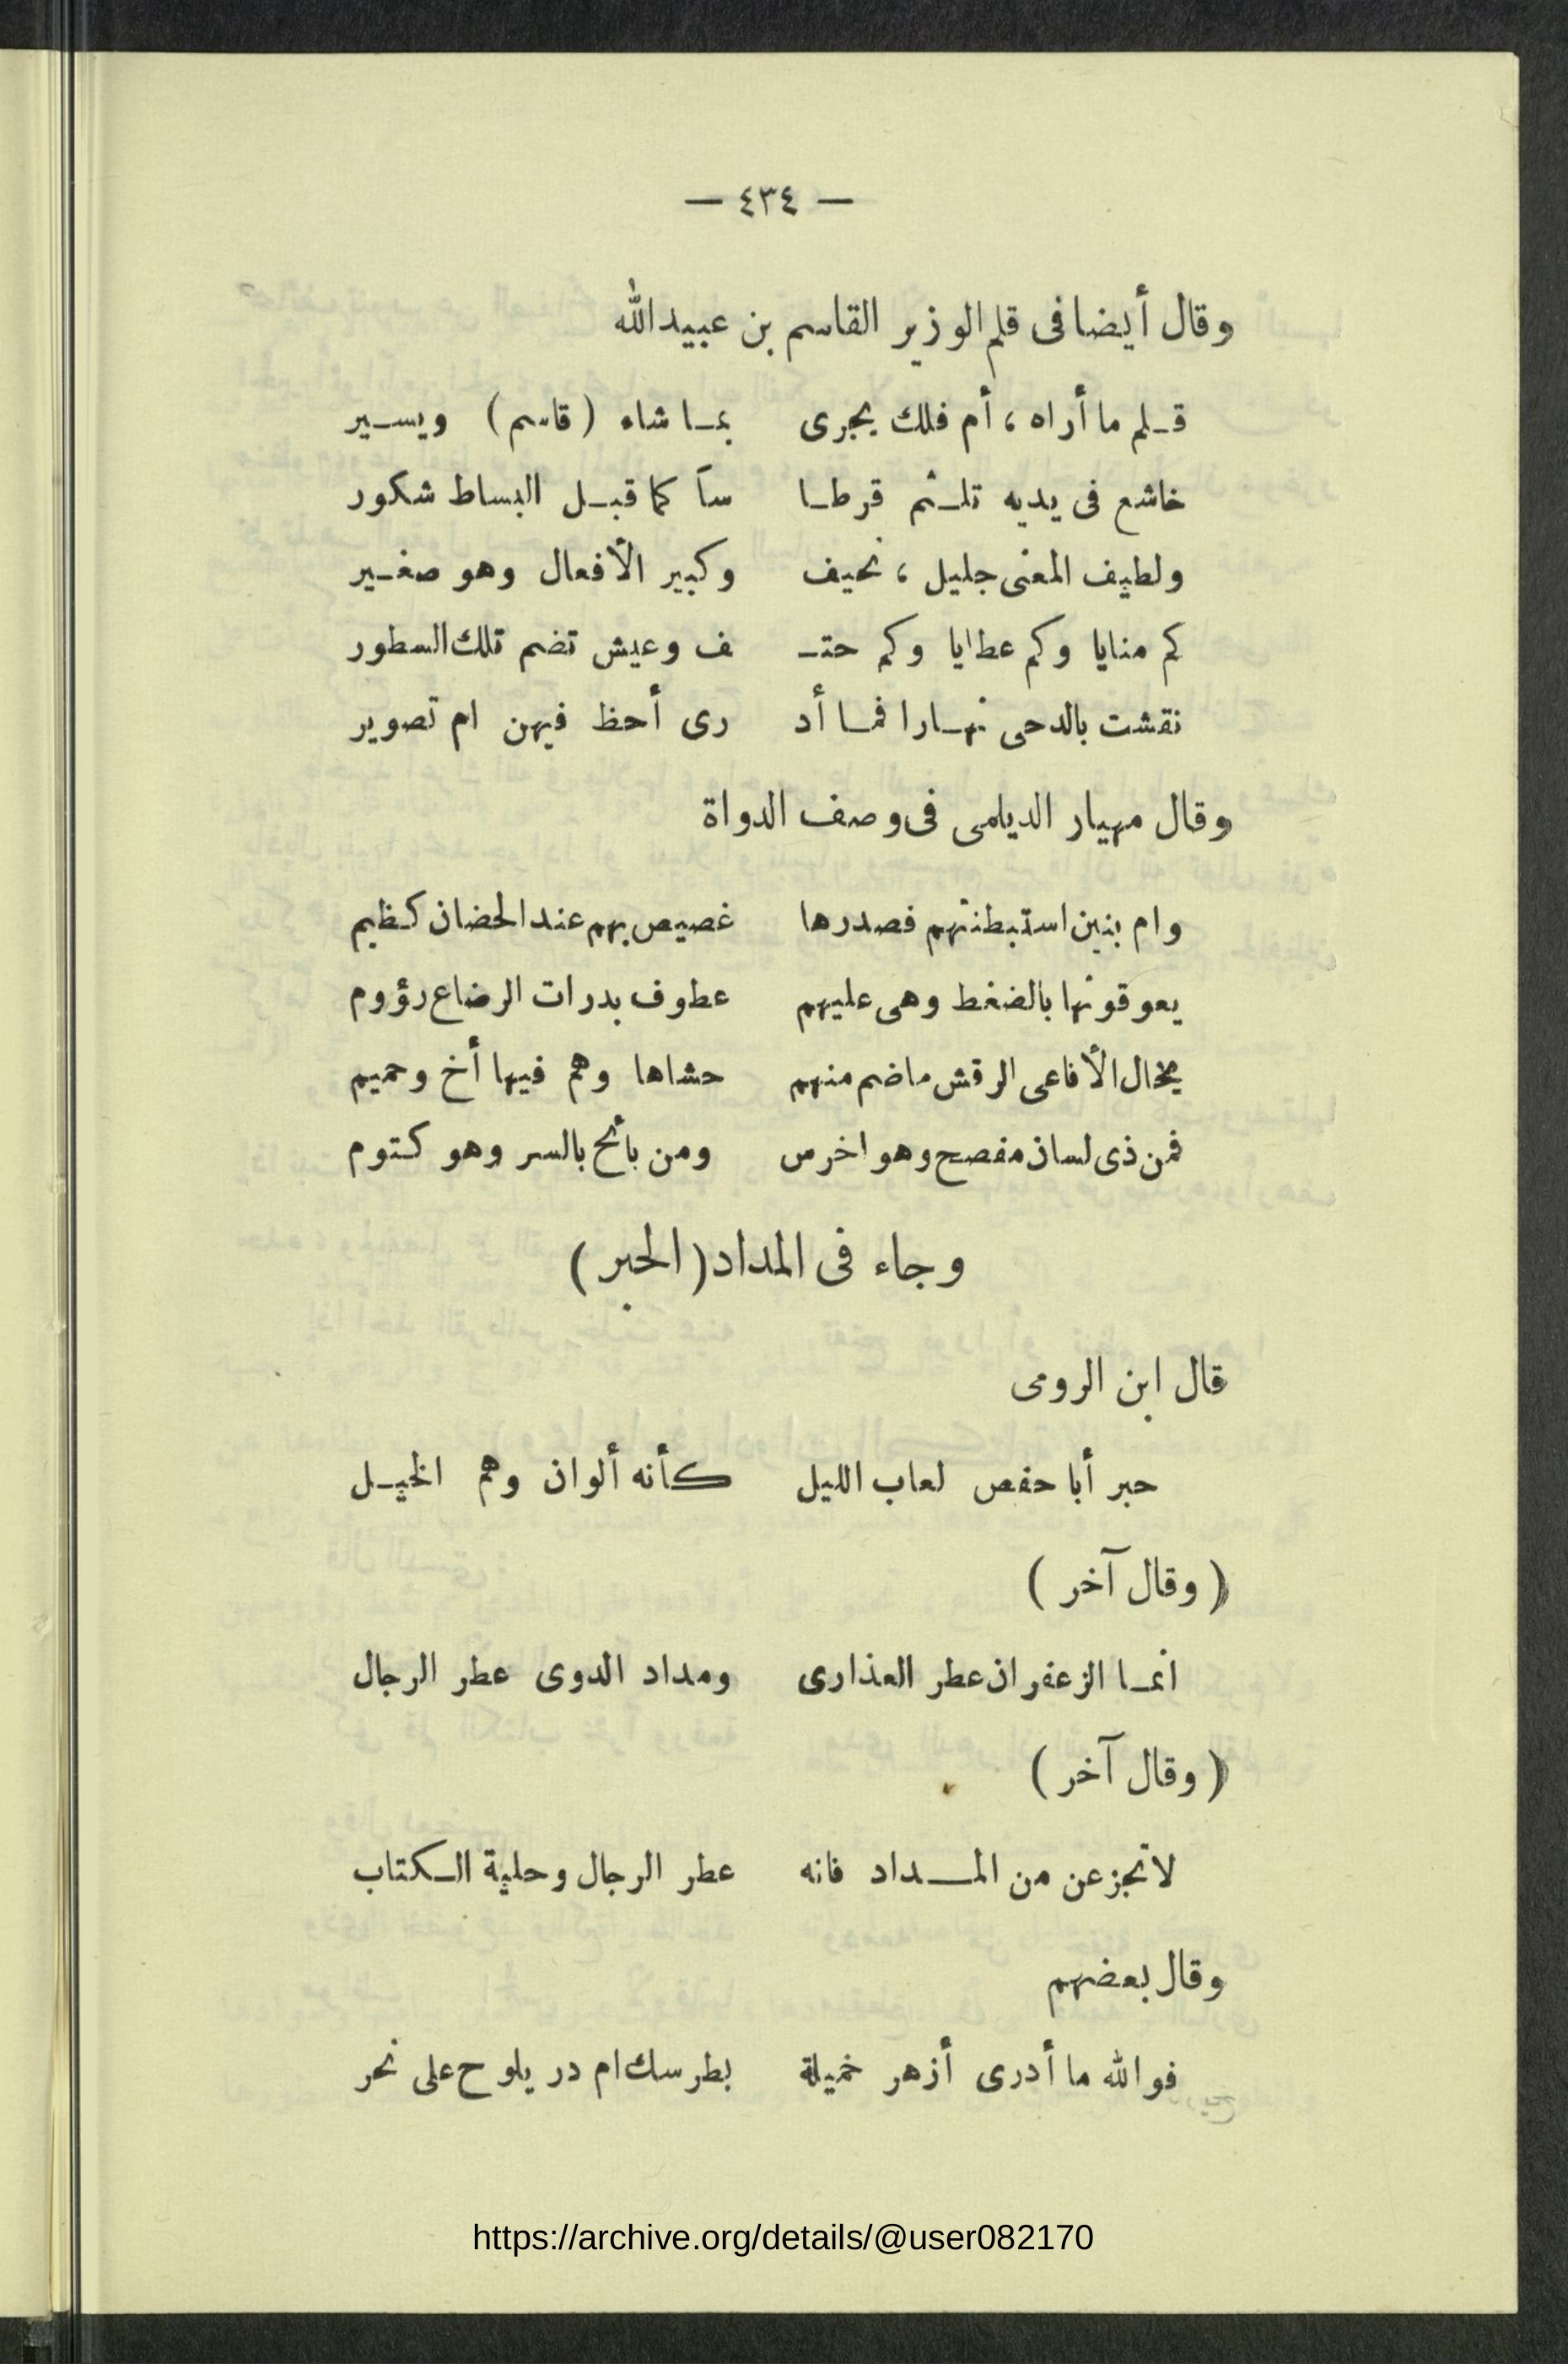 — ٤٣٤ —
وقال أيضا فى قلم الوزير القاسم بن عبيدالله
قـلم ما أراه ، أم فلك يجرى بمـا شاه ( قاسم ) ويسـير
خاشع فى يديه تلـثم قرطـا سآ كما قبـل البساط شكور
ولطيف المعنى جليل ، نحيف وكبير الأفعال وهو صغـير
كم منايا وكم عطايا وكم حتـ ف وعيش تضم تلك السطور
نقشت بالدحى نهـارا فمـا أد رى أحظ فيهن ام تصوير
وقال مهيار الديلمى فى وصف الدواة
وام بنين استبطنتهم فصدرها غصيص بهم عند الحضان كـظيم
يعوقونها بالضغط وهى عليهم عطوف بدرات الرضاع رؤوم
يخال الأفاعى الرقش ماضم منهم حشاها وهم فيها أخ وحميم
فمن ذى لسان مفصح وهو اخرس ومن بائح بالسر وهو كـتوم
وجاء فى المداد ( الحبر )
قال ابن الرومى
حبر أبا حفص لعاب الليل كأنه ألوان وهم الخيـل
( وقال آخر )
انمـا الزعفران عطر العذارى ومداد الدوى عطر الرجال
( وقال آخر )
لا تجزعن من المــداد فانه عطر الرجال وحلية الـكتاب
وقال بعضهم
فو الله ما أدرى أزهر خميلة بطرسك ام در يلوح على نحر
https://archive.org/details/@user082170